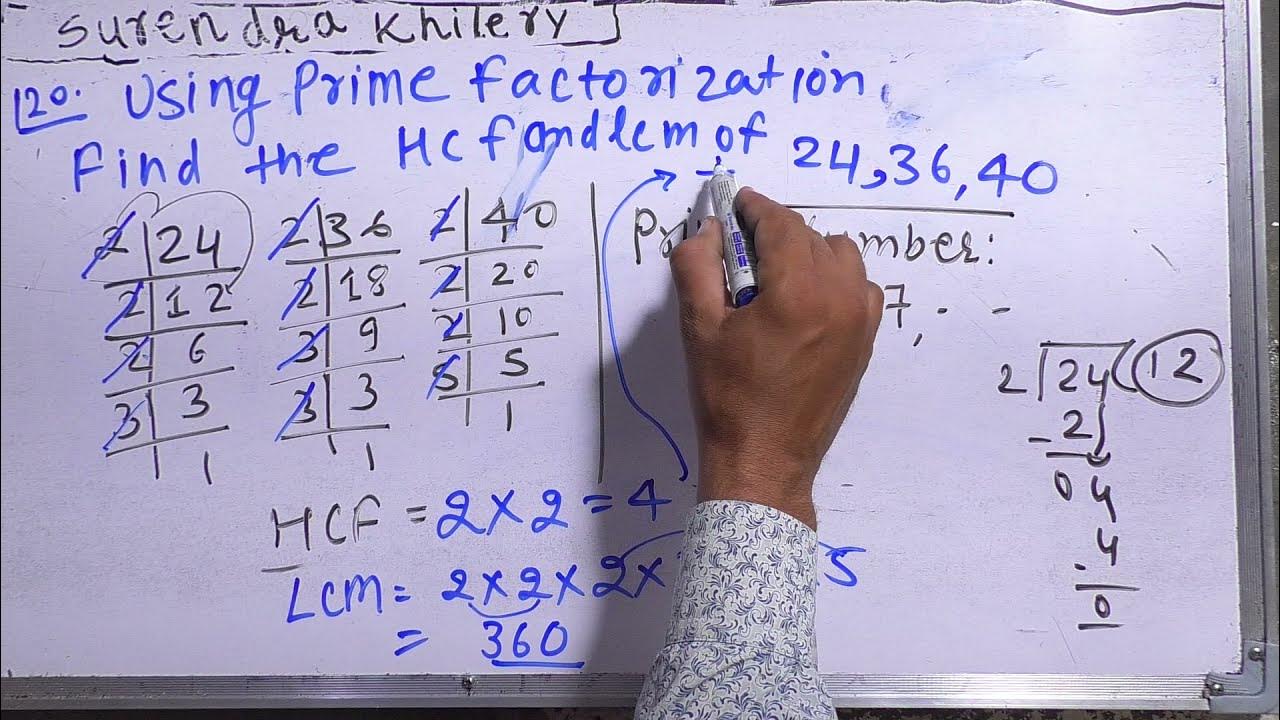 Surendra Khilery
120. Using Prime factorization,
Find the HCf and lcm of 24,36,40
2 24
2 12
2 6
3 3
1
2 36
2 18
3 9
3 3
1
2 40
2 20
2 10
5 5
1
number:
7, - -
2 24 12
- 2
0 4
4
0
HCF = 2 × 2 = 4
LCM = 2 × 2 × 2 × 5
= 360